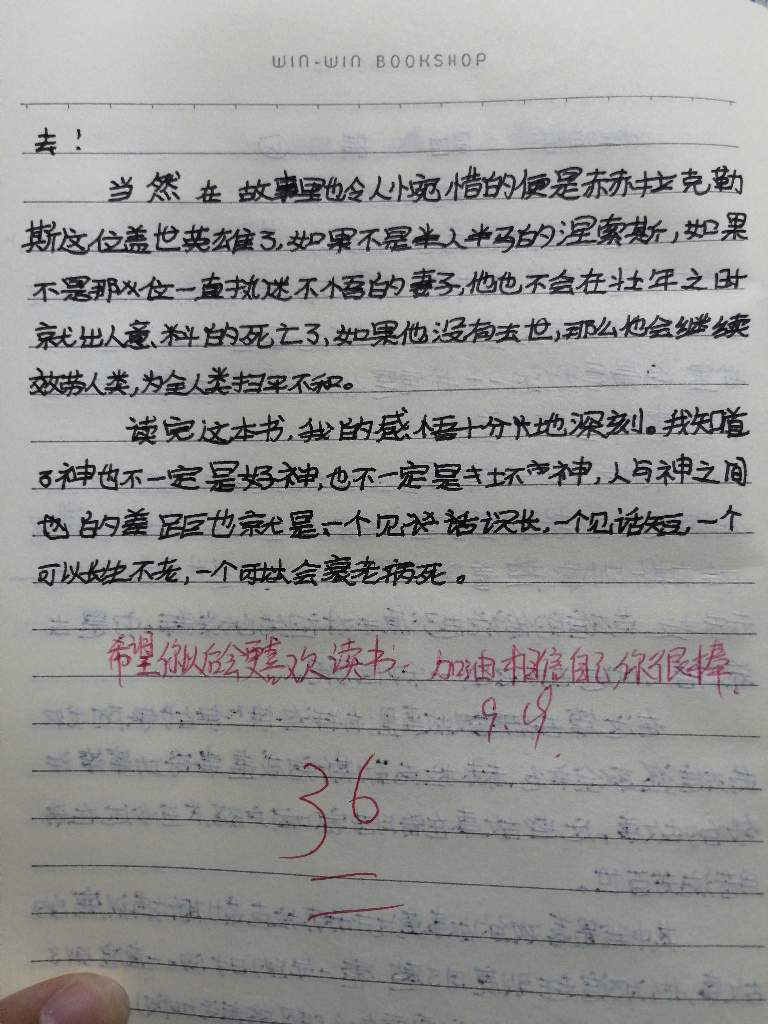 WIN-WIN BOOKSHOP
去！
当然在故事里也令人惋惜的便是赫拉克勒
斯这位盖世英雄了，如果不是半人半马的涅索斯，如果
不是那位一直执迷不悟的妻子，他也不会在壮年之时
就出人意料的死亡了，如果他没有去世，那么他会继续
效劳人类，为全人类扫平不和。
读完这本书，我的感悟十分地深刻。我知道
了神也不一定是好神，也不一定是坏神，人与神之间
的差距也就是一个见识长，一个见识短，一个
可以长生不老，一个会衰老病死。
希望你以后会更喜欢读书，加油相信自己，你很棒。
9.19
36